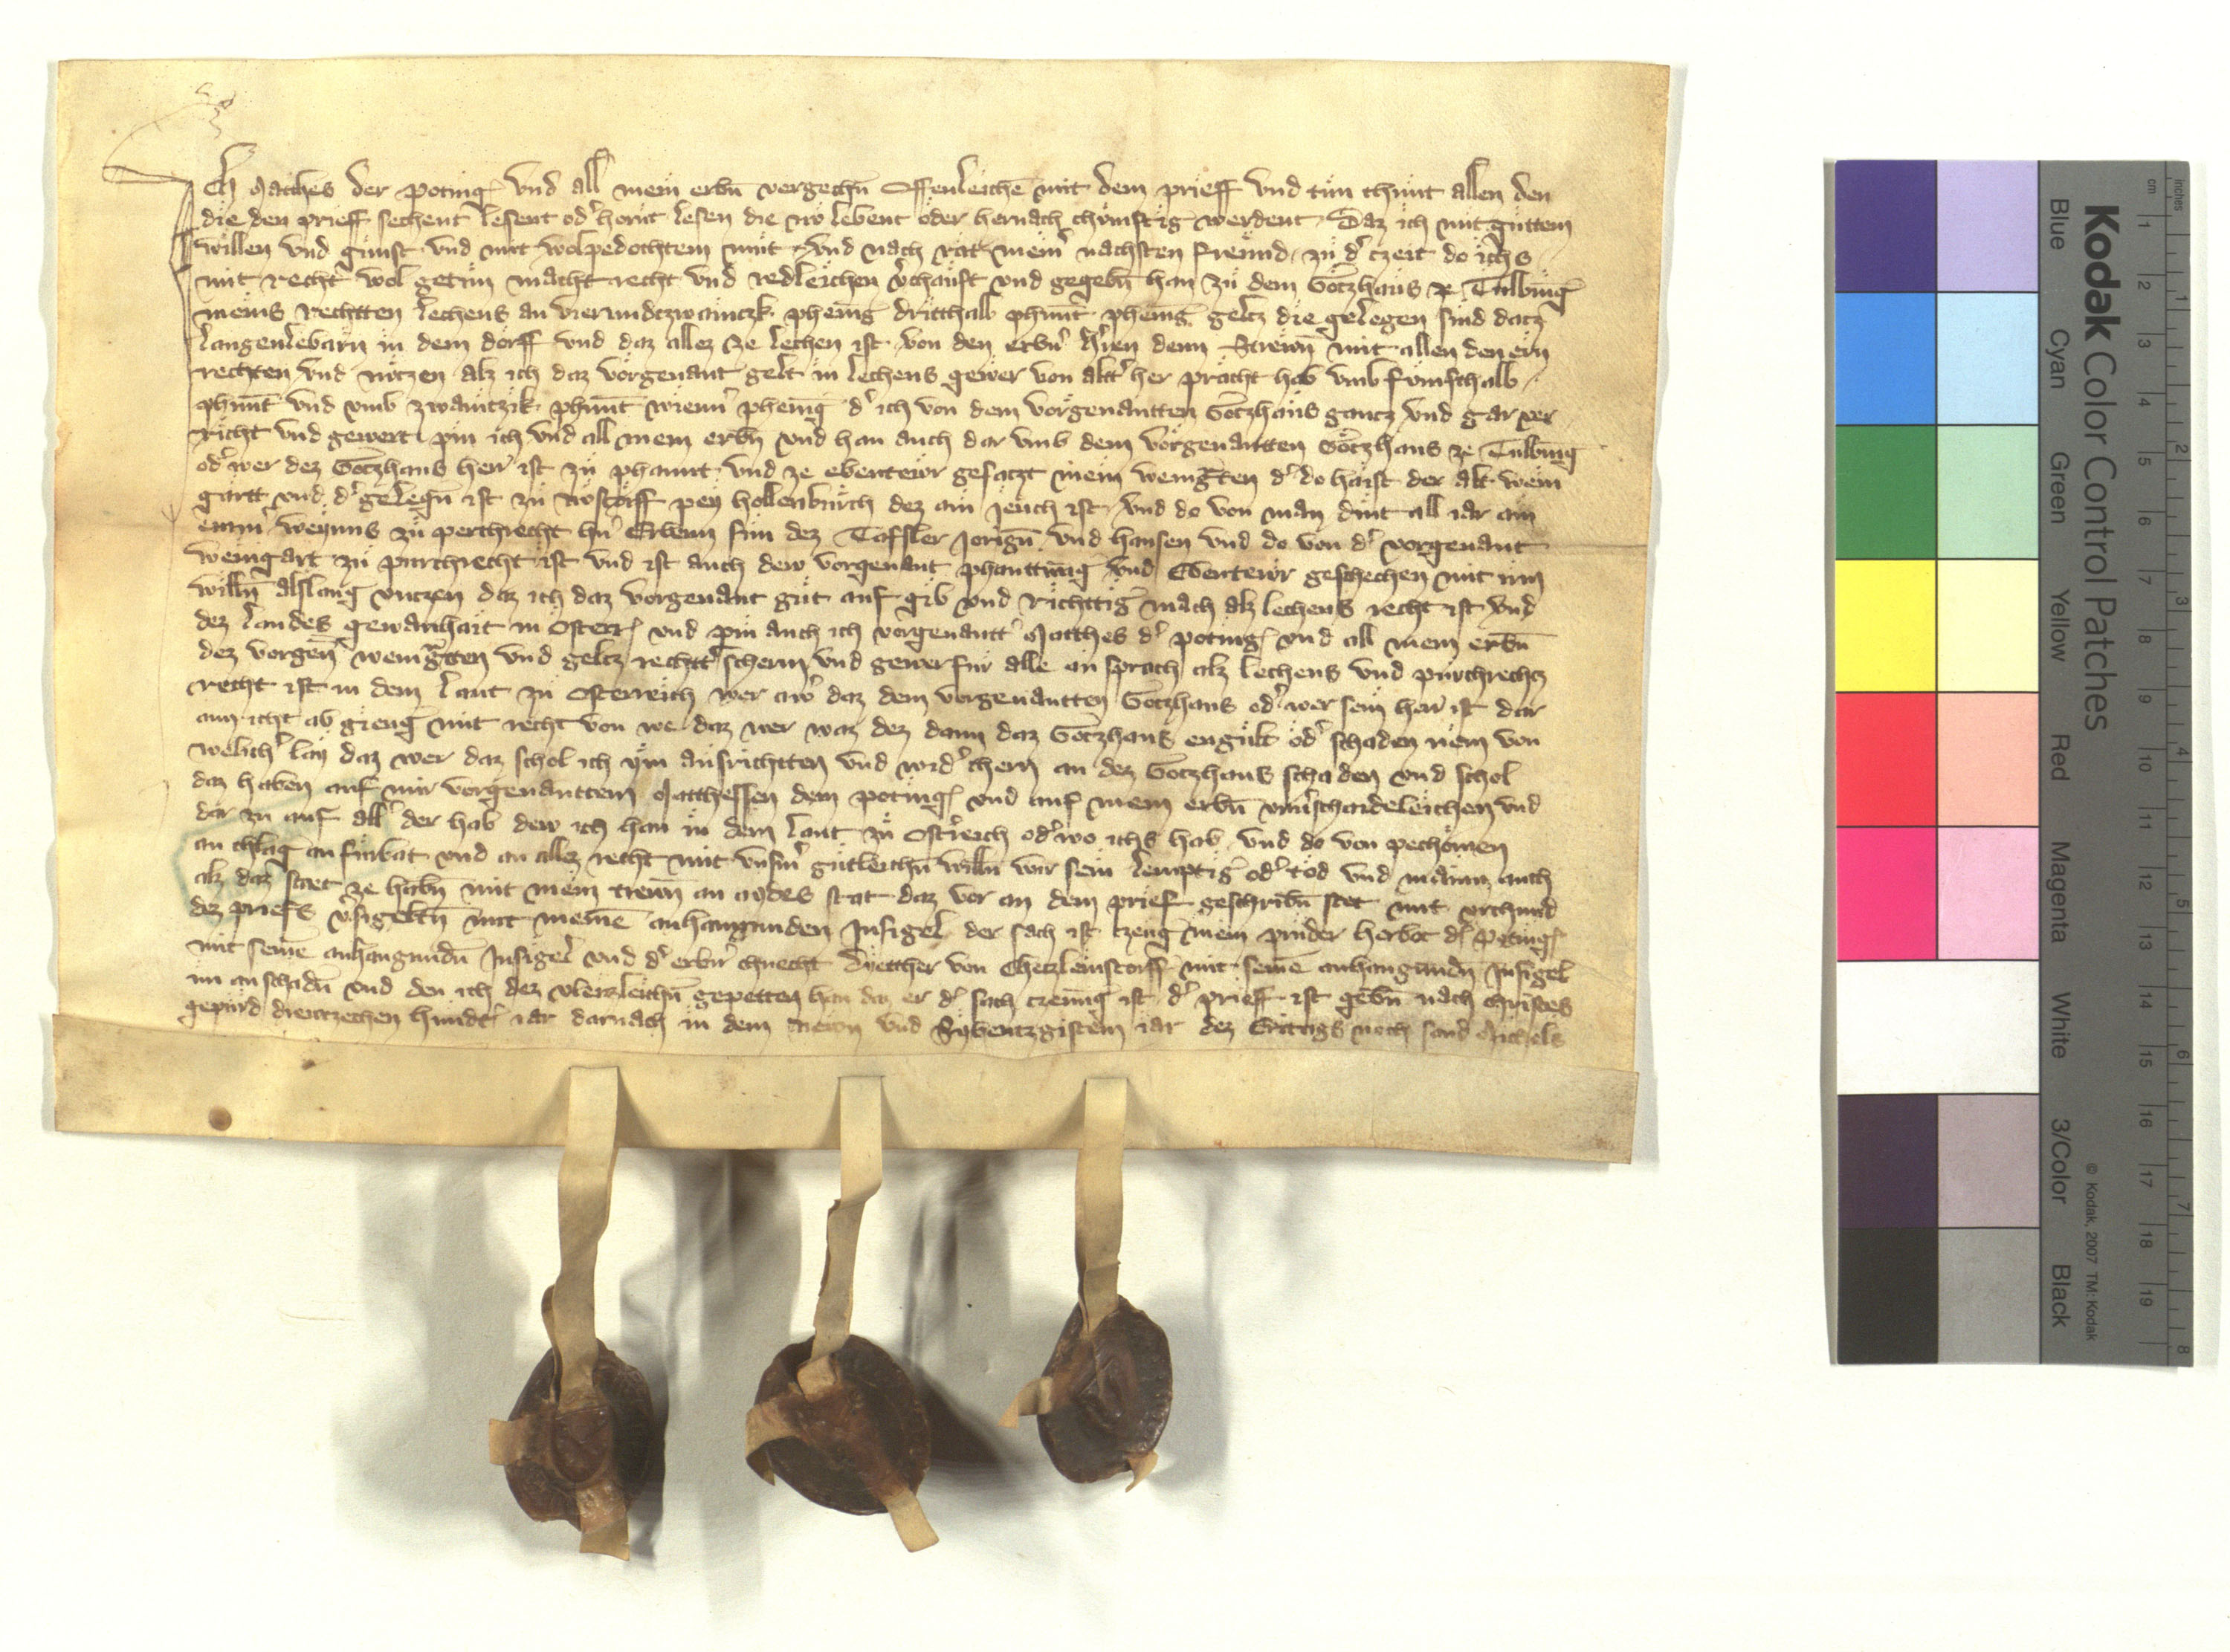 Ich Mathes der poting' vnd all mein erbn̄ vergechn̄ Offenleichē mit dem prieff vnd tün chünt allen den
die den prieff sechent lesent od' hörnt lesen die nw lebent oder hernach chömftig werdent Daz ich mit güttem
willen vnd günst vnd mit wolpedochtem müt vnd nach rat mein' nachsten freünd zü d' czeit do ichs
mit recht wol getün macht recht vnd redleichen v'chauft vnd gegebn̄ han zü dem Gotzhaüs ze Tulbing'
meins rechtten lechens an vierundczwainczk phenīg dritthalb phünt phenīg geltz die gelegen sind datz
Langenlebarn in dem dorff vnd daz allez ze lechen ist von den erbn' h'ren denn Strewn̄ mit allen den ern
rechten vnd nützen alz ich daz vorgenant gelt in lechens gewer von altt' her pracht hab vmb fümfthalb
phünt vnd vmb zwaintzik phünt wienn' phenīg d' ich von dem vorgenantten Gotzhaüs gancz vnd gar ver
richt vnd gewert pin ich vnd all mein erbn̄ vnd han auch dar vmb dem vorgenantten Gotzhaus ze Tulbing
od' wer dez Gotzhaus herr ist zü phannt vnd ze ebentewr gesaczt mein weingrten d' do haist der alt wein
gartt vnd d' gelegn̄ ist zü pey hollenburch dez ain jeuch ist vnd do von man dint all iar ain
emm' weynns zü perchrecht hn' sün dez Tossler Jorign̄ vnd hansen vnd do von d' vorgenant
weingart zü purchrecht ist vnd ist auch dew vorgenant phanttung vnd Ebentewr geschechen mit irm
willn̄ alslang vnczen daz ich daz vorgenant güt auf gib vnd richttig mach alz lechens recht ist vnd
dez landes gewanhait in Osterr' vnd pin auch ich vorgenantt' Mathes d' poting' vnd all mein erbn̄
dez vorgen̄ weingrtten vnd geltz rechtt' scherm vnd gewer für alle an sprach alz lechens vnd purchrechtz
recht ist in dem lant zu Osterreich wer aw' daz dem vorgenantten Gotzhaus od' wer sein herr ist dar
ann icht ab gieng mit recht von we daz wer waz dez dann daz Gotzhaus engült od' schaden nem von
welich' lay daz wer daz schol ich ym ausrichtten vnd wid' chern an dez Gotzhaus schaden vnd schol
daz haben auf mir vorgenanttem Matthessen dem poting' vnd auf mein erbn̄ vnu'schaideleichen vnd
dar zu auf all' der hab dew ich han in dem lant zü Ost'reich od' wo ichs hab vnd do von pechömen
an chlag an fürbat vnd an allez recht mit vnserm gütleichn̄ willn̄ wir sein lemptig od' töd vnd auch
alz daz staet ze habn̄ mit mein trewn̄ an aydes stat daz vor an dem prief geschribn̄ stet mit vrchund
dez priefs v'sigeltn̄ mit meinē anhangunden Insigel der sach ist czeug mein prüder herbot d' poting'
mit seinē anhangundn̄ Insigel vnd d' erbn' chnecht dyetther von Chetzleinstorff mit seinē anhangundn̄ Insigel
im an schadn̄ vnd den ich dez vleizleichn̄ gepetten han daz er d' sach czeunig ist d' prieff ist gebn̄ nach christes
gepürd dreuczechen hundt' iar darnach in dem newn vnd Sybentzgistem iar dez Eritags noch sand Michels
Kodak Color Control Patches
Blue Cyan Green Yellow Red Magenta White 3/Color Black
© Kodak, 2007 TM: Kodak
inches 1 2 3 4 5 6 7 8
cm 1 2 3 4 5 6 7 8 9 10 11 12 13 14 15 16 17 18 19